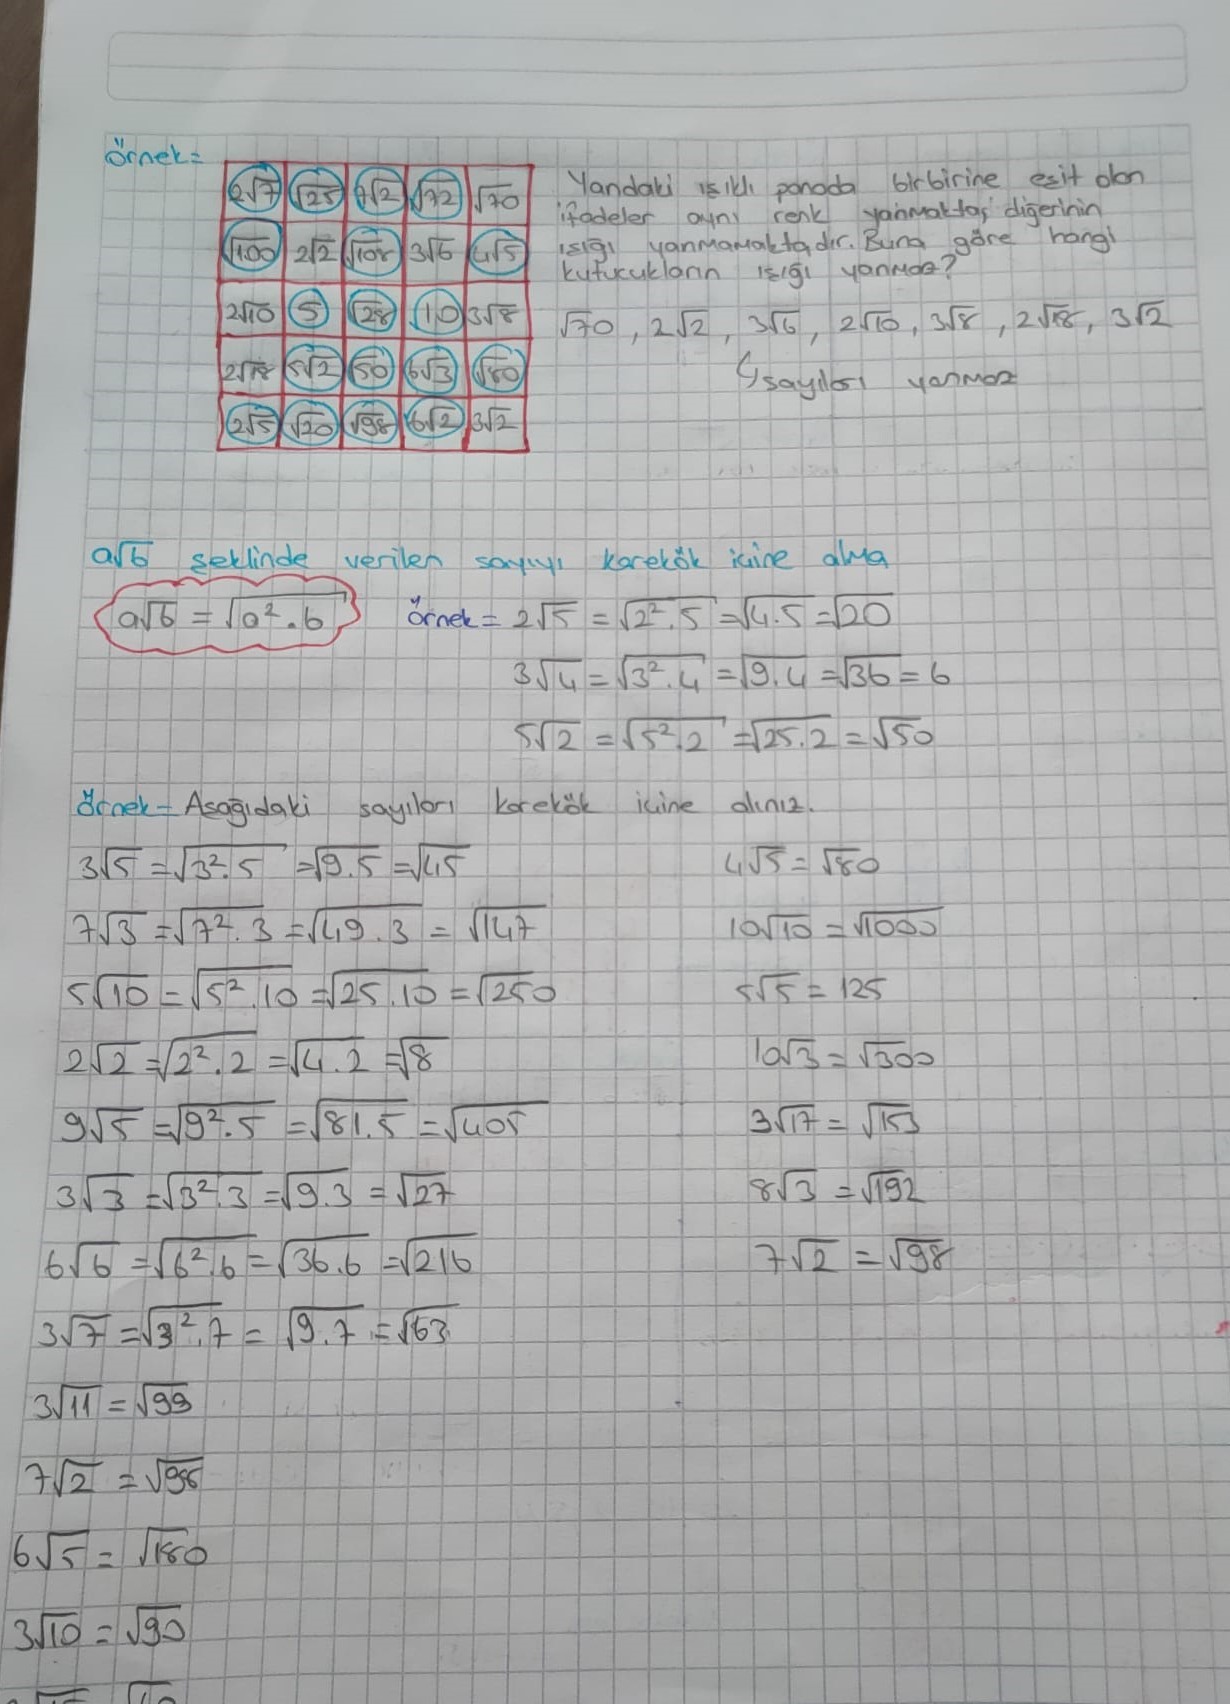 örnek=
2√7 √25 7√2 √72 √70
√100 2√2 √108 3√6 4√5
2√10 5 √28 10 3√8
2√18 5√2 √50 6√3 √80
2√5 √20 √98 6√2 3√2
Yandaki ışıklı panoda birbirine eşit olan
ifadeler aynı renk yanmaktas diğerinin
ışığı yanmamaktadır. Buna göre hangi
kutucukların ışığı yanmaz?
√70, 2√2, 3√6, 2√10, 3√8, 2√18, 3√2
↳sayıları yanmaz
a√b şeklinde verilen sayıyı karekök içine alma
a√b = √a².b
örnek= 2√5 = √2².5 = √4.5 = √20
3√4 = √3².4 = √9.4 = √36 = 6
5√2 = √5².2 = √25.2 = √50
örnek= Aşağıdaki sayıları karekök içine alınız.
3√5 = √3².5 = √9.5 = √45
4√5 = √80
7√3 = √7².3 = √49.3 = √147
10√10 = √1000
5√10 = √5².10 = √25.10 = √250
5√5 = 125
2√2 = √2².2 = √4.2 = √8
10√3 = √300
9√5 = √9².5 = √81.5 = √405
3√17 = √153
3√3 = √3².3 = √9.3 = √27
8√3 = √192
6√6 = √6².6 = √36.6 = √216
7√2 = √98
3√7 = √3².7 = √9.7 = √63
3√11 = √99
7√2 = √98
6√5 = √180
3√10 = √90